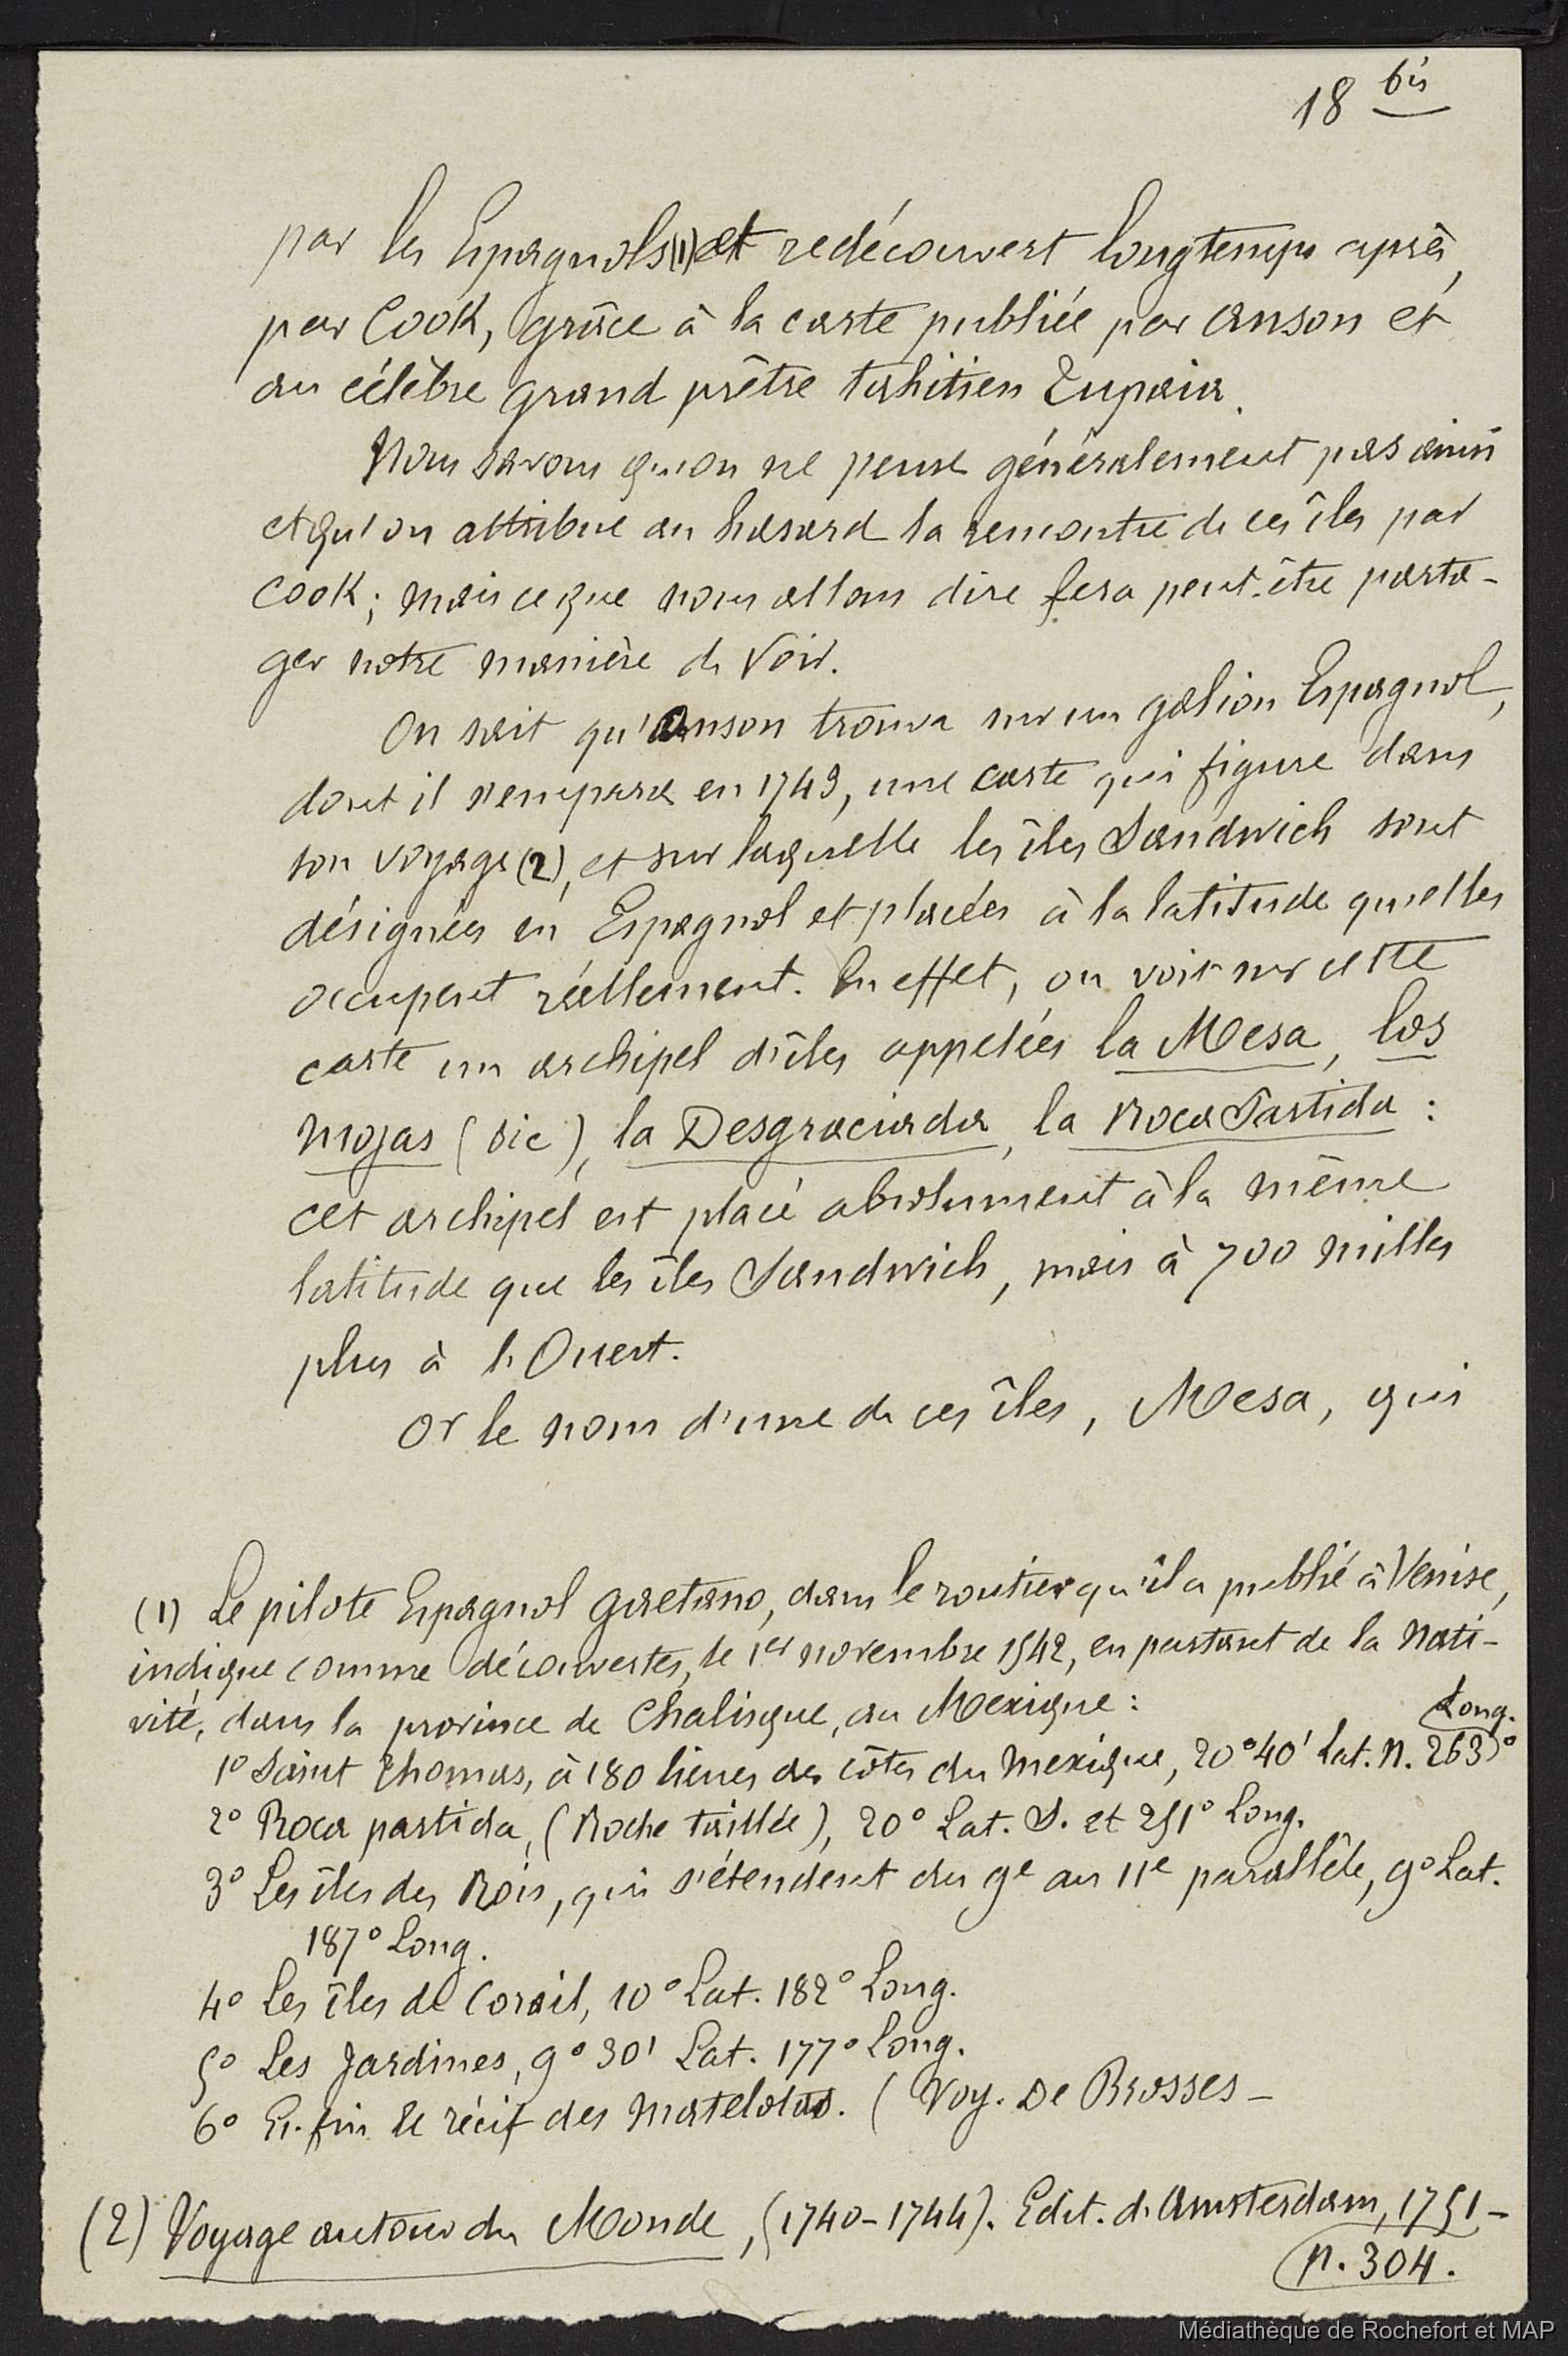 18 bis
par les Espagnols (1) et redécouvert longtemps après,
par Cook, grâce à la carte publiée par Anson et
au célèbre grand prêtre tahitien Tupaia.
Nous savons qu'on ne pense généralement pas ainsi
et qu'on attribue au hasard la rencontre de ces îles par
Cook; mais ce que nous allons dire fera peut-être parta-
ger notre manière de voir.
On sait qu'Anson trouva sur un galion Espagnol,
dont il s'empara en 1743, une carte qui figure dans
son voyage (2), et sur laquelle les îles Sandwich sont
désignées en Espagnol et placées à la latitude qu'elles
occupent réellement. En effet, on voit sur cette
carte un archipel d'îles appelées la Mesa, los
Mojas (sic), la Desgraciada, la Roca Partida :
cet archipel est placé absolument à la même
latitude que les îles Sandwich, mais à 700 milles
plus à l'Ouest.
Or le nom d'une de ces îles, Mesa, qui
(1) Le pilote Espagnol Gaetano, dans le routier qu'il a publié à Venise,
indique comme découvertes, le 1er novembre 1542, en partant de la Nati-
vité, dans la province de Chalisque, au Mexique :
1° Saint Thomas, à 180 lieues des côtes du Mexique, 20° 40' Lat. N. 263° Long.
2° Roca partida, (Roche taillée), 20° Lat. S. et 251° Long.
3° Les îles des Rois, qui s'étendent du 9e au 11e parallèle, 9° Lat.
187° Long.
4° Les îles de Corail, 10° Lat. 182° Long.
5° Les Jardines, 9° 30' Lat. 177° Long.
6° Enfin le récif des Matelotas. (Voy. De Brosses -
(2) Voyage autour du Monde, (1740-1744). Edit. d'Amsterdam, 1751 -
p. 304.
Médiathèque de Rochefort et MAP